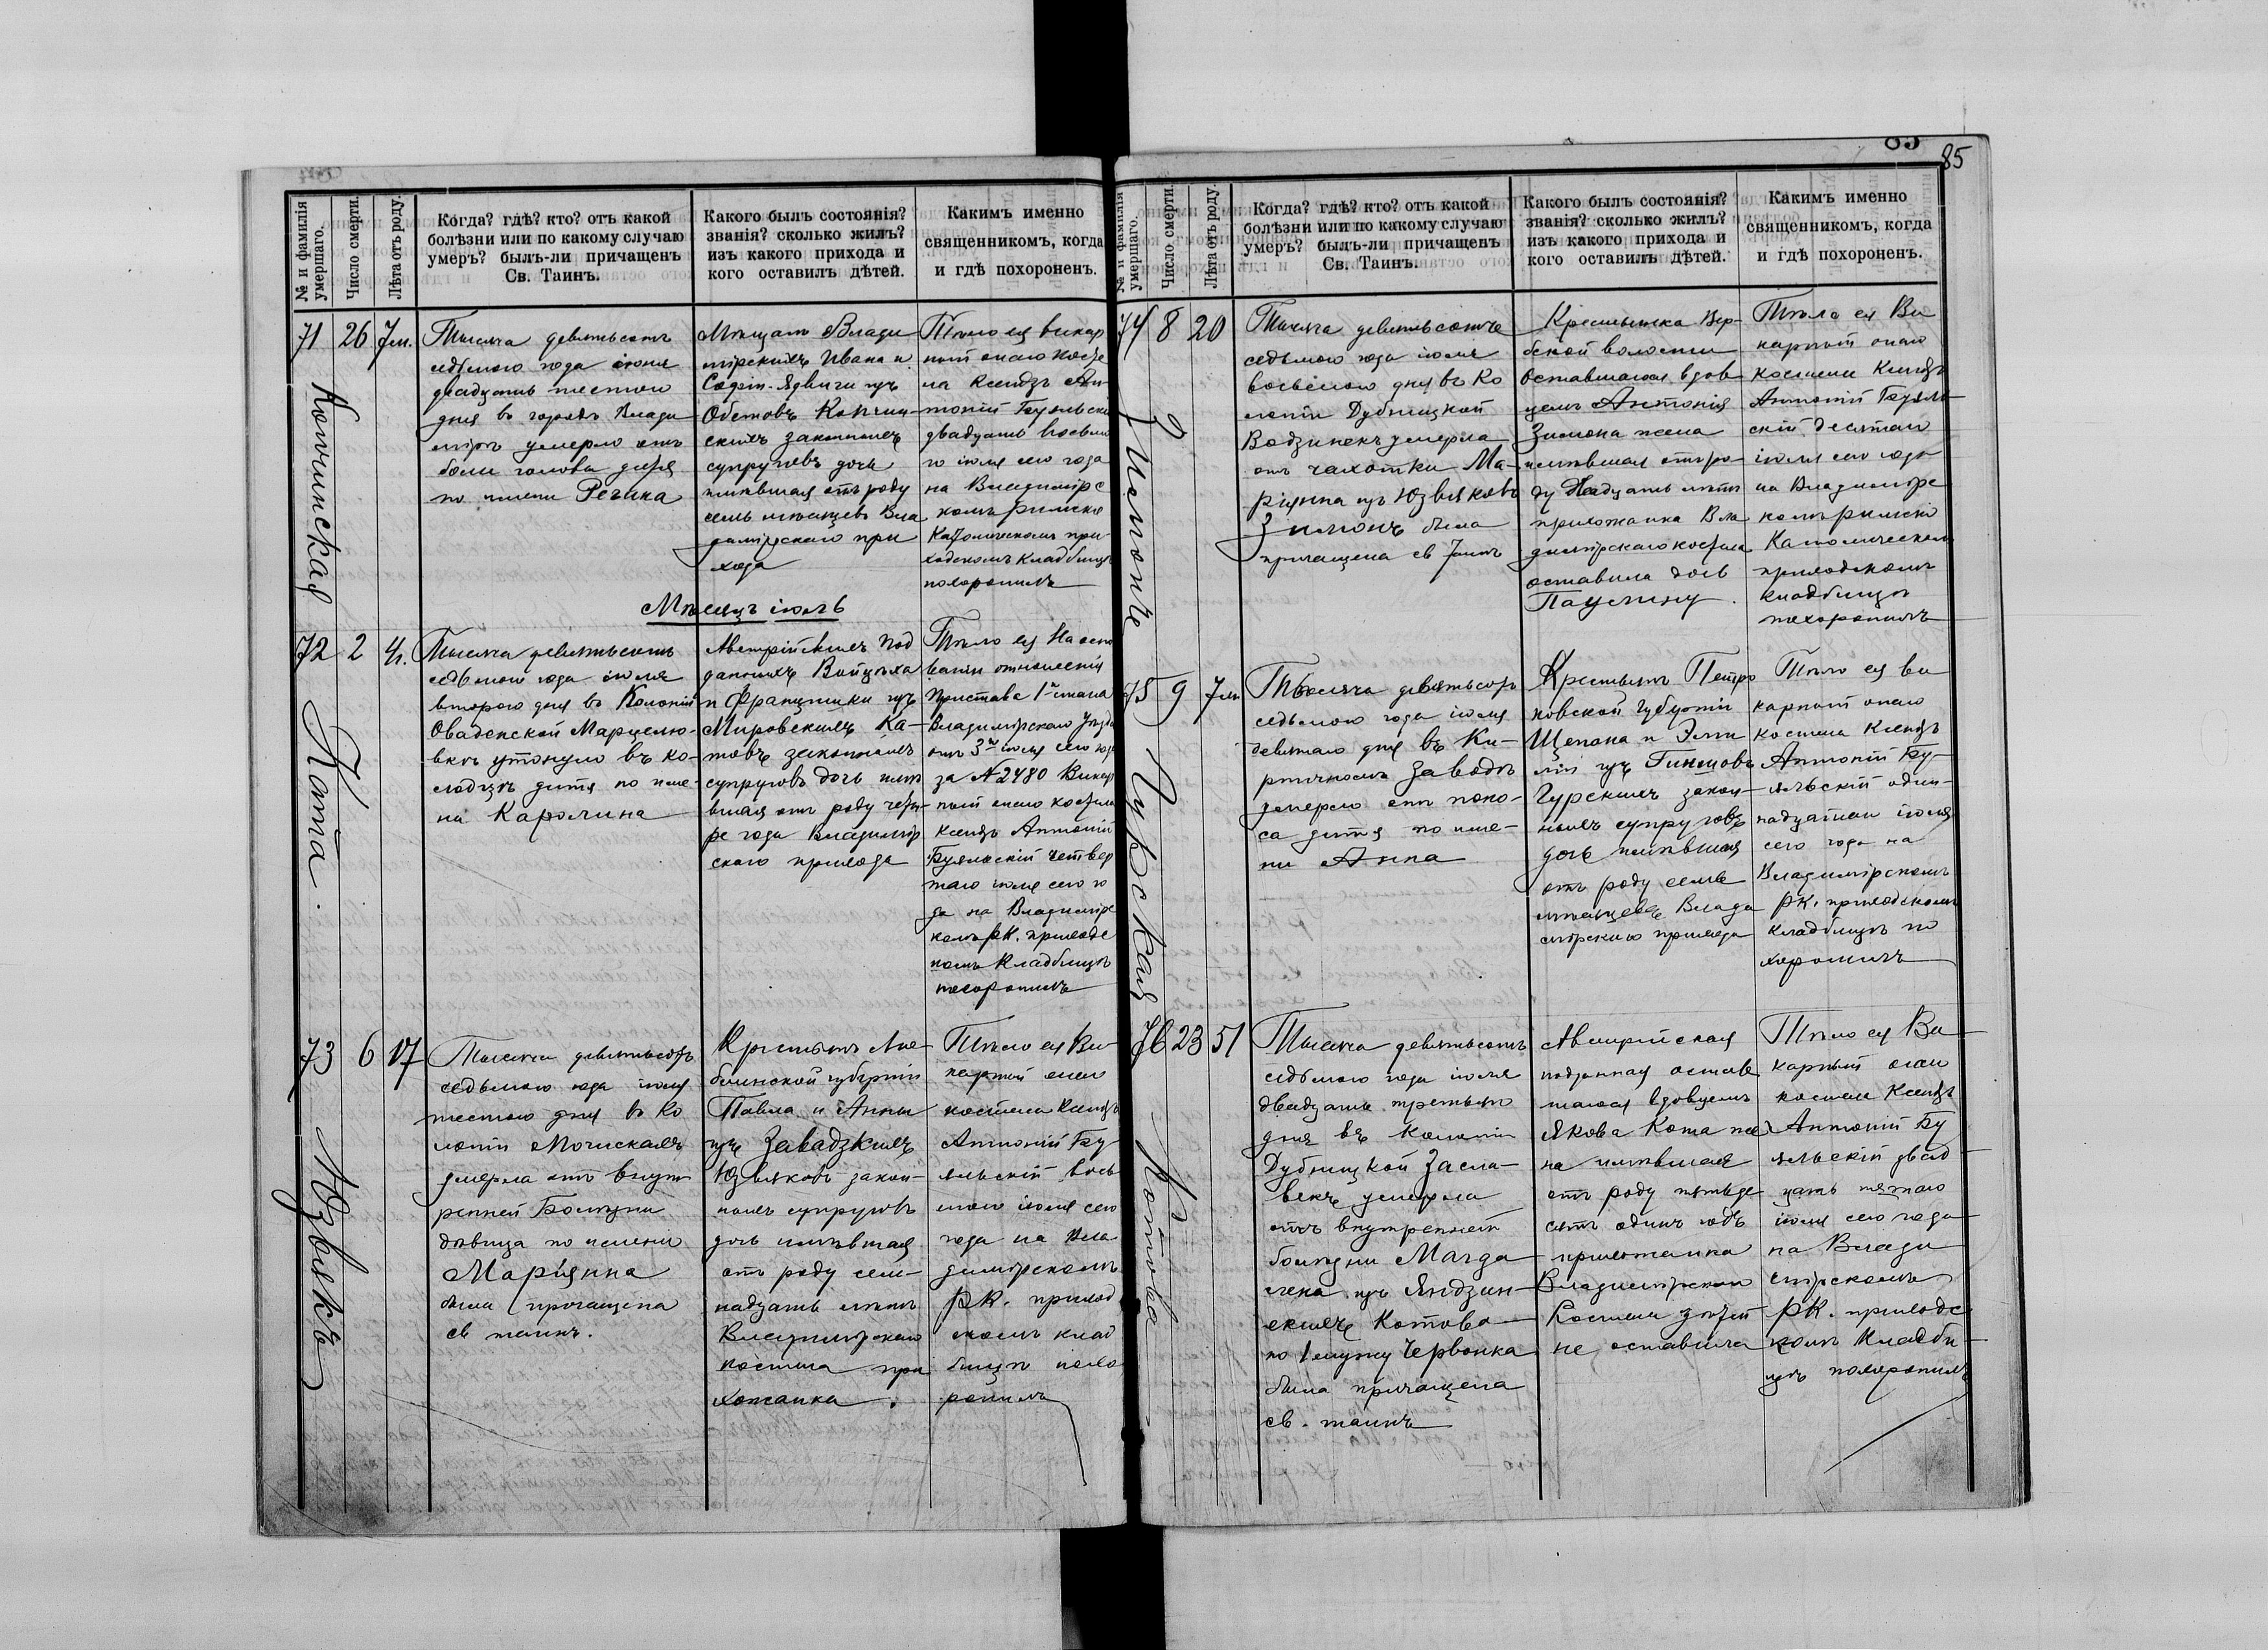 85
№ и фамилія умершаго.
Число смерти.
Лѣта отъ роду.
Когда? гдѣ? кто? отъ какой
болѣзни или по какому случаю
умеръ? былъ-ли причащенъ
Св. Таинъ.
Какого былъ состоянія?
званія? сколько жилъ?
изъ какого прихода и
кого оставилъ дѣтей.
Какимъ именно
священникомъ, когда
и гдѣ похороненъ.
71
26
7 м.
Тысяча девятьсотъ
седьмого года іюня
двадцать шестого
дня въ городѣ Влади
мірѣ умерло отъ
боли головы дитя
по имени Регина
Мѣщанъ Влади
мірскихъ Ивана и
Софіи-Ядвиги изъ
Копчин
скихъ законныхъ
супруговъ дочь
имѣвшая отъ роду
семь мѣсяцевъ Вла
димірскаго при
хода
Тѣло ея викар
ный онаго косте
ла Ксендзъ Ан
тоній Буяльскій
двадцать восьмо
го іюня сего года
на Владимірс
комъ римско
Католическомъ при
ходскомъ кладбищѣ
похоронилъ
Мѣсяцъ іюль
72
2
4 г.
Ката.
Тысяча девятьсотъ
седьмого года іюля
второго дня въ Колоніи
Оваденской Марцелю-
вкѣ утонуло въ ко-
лодцѣ дитя по име-
ни Каролина
Австрійскихъ под
данныхъ Войцѣха
и Францишки изъ
Мировскихъ Ка-
товъ законныхъ
супруговъ дочь имѣ
вшая отъ роду четы-
ре года Владимір
скаго прихода
Тѣло ея На осно
ваніи отношенія
Пристава 1го стана
Владимірскаго уѣзда
отъ 3го іюля сего года
за № 2480 Викар
ный онаго костела
Ксендзъ Антоній
Буяльскій четвер
таго іюля сего го
да на Владимірс
комъ р.к. приходс
комъ Кладбищѣ
похоронилъ
73
6
17
Юзвякъ
Тысяча девятьсотъ
седьмого года іюля
шестого дня въ Ко
лоніи
умерла отъ внут
ренней Болѣзни
дѣвица по имени
Маріянна
была причащена
св. таинъ.
Крестьянъ Лю-
блинской губерніи
Павла и Анны
изъ Завадзкихъ
Юзвяковъ закон-
ныхъ супруговъ
дочь имѣвшая
отъ роду сем-
надцать лѣтъ
Владимірскаго
костела при
хожанка.
Тѣло ея Ви-
карный онаго
костела Ксендзъ
Антоній Бу
яльскій вось
мого іюля сего
года на Вла
димірскомъ
р.к. приход
скомъ клад
бищѣ похо
ронилъ
№ и фамилія умершаго.
Число смерти.
Лѣта отъ роду.
Когда? гдѣ? кто? отъ какой
болѣзни или по какому случаю
умеръ? былъ-ли причащенъ
Св. Таинъ.
Какого былъ состоянія?
званія? сколько жилъ?
изъ какого прихода и
кого оставилъ дѣтей.
Какимъ именно
священникомъ, когда
и гдѣ похороненъ.
74
8
20
Зимонъ
Тысяча девятьсотъ
седьмого года іюля
восьмого дня въ Ко
лоніи Дубницкой
Водзинекъ умерла
отъ чахотки Ма-
ріянна изъ Юзвяковъ
Зимонъ была
причащена св Таинъ
Крестьянка Вер-
бской волости
Оставшагося вдов
цемъ Антонія
Зимона жена
имѣвшая отъ ро-
ду двадцать лѣтъ
прихожанка Вла
димірскаго костела
оставила дочь
Паулину.
Тѣло ея Ви
карный онаго
костела Ксендзъ
Антоній Буяль-
скій десятаго
іюля сего года
на Владимірс
комъ римско
Католическомъ
приходскомъ
кладбищѣ
похоронилъ
75
9
7 м
Гурская
Тысяча девятьсотъ
седьмого года іюля
девятаго дня въ Ки-
рпичномъ заводѣ
умерло отъ поно-
са дитя по име-
ни Анна
Крестьянъ Петро
ковской Губерніи
Щепана и Эми
ліи изъ
Гурскихъ закон-
ныхъ супруговъ
дочь имѣвшая
отъ роду семь
мѣсяцевъ Влади
мірскаго прихода
Тѣло ея ви
карный онаго
костела Ксендзъ
Антоній Бу-
яльскій один-
надцатаго іюля
сего года на
Владимірскомъ
р.к. приходскомъ
кладбищѣ по
хоронилъ
76
23
51
Котова
Тысяча девятьсотъ
седьмого года іюля
двадцать третьяго
дня въ колоніи
Дубницкой Засла-
векъ умерла
отъ внутренней
болѣзни Магда
лена изъ Яндзин-
скихъ Котова
по 1 мужу Червонка
была причащена
св. таинъ
Австрійская
подданная остав
шагося вдовцемъ
Якова Кота же
на имѣвшая
отъ роду пятьде
сятъ одинъ годъ
прихожанка
Владимірскаго
Костела дѣтей
не оставила
Тѣло ея Ви-
карный онаго
костела Ксендзъ
Антоній Бу
яльскій двад
цать пятаго
іюля сего года
на Влади
мірскомъ
р.к. приходс
комъ Кладби-
щѣ похоронилъ